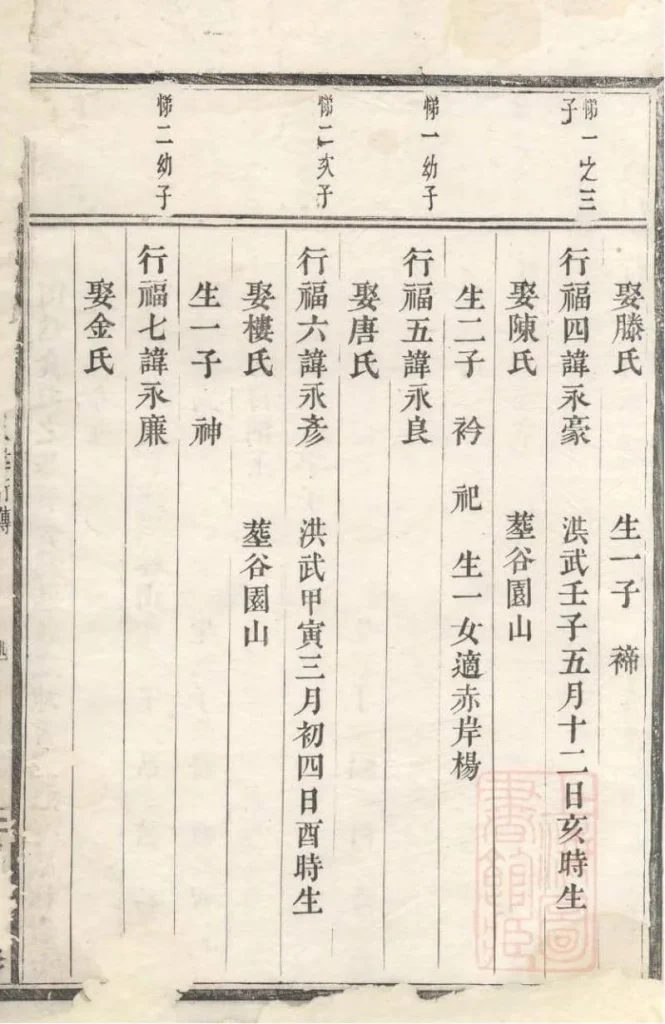 娶滕氏　生一子　禘
悌一之三子
行福四諱永豪　洪武壬子五月十二日亥時生
娶陳氏　塟谷園山
生二子　衿　祀　生一女適赤岸楊
悌一幼子
行福五諱永良
娶唐氏
悌二次子
行福六諱永彥　洪武甲寅三月初四日酉時生
娶樓氏　塟谷園山
生一子　神
悌二幼子
行福七諱永廉
娶金氏